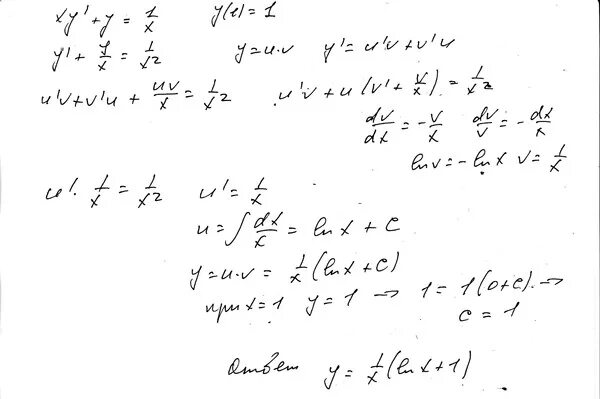 xy' + y = 1/x    y(1) = 1
y' + y/x = 1/x²    y = u·v    y' = u'v + v'u
u'v + v'u + uv/x = 1/x²    u'v + u(v' + v/x) = 1/x²
dv/dx = -v/x    dv/v = -dx/x
ln v = -ln x    v = 1/x
u'·1/x = 1/x²    u' = 1/x
u = ∫dx/x = ln x + C
y = u·v = 1/x (ln x + C)
при x = 1    y = 1 → 1 = 1(0 + C) →
C = 1
Ответ    y = 1/x (ln x + 1)